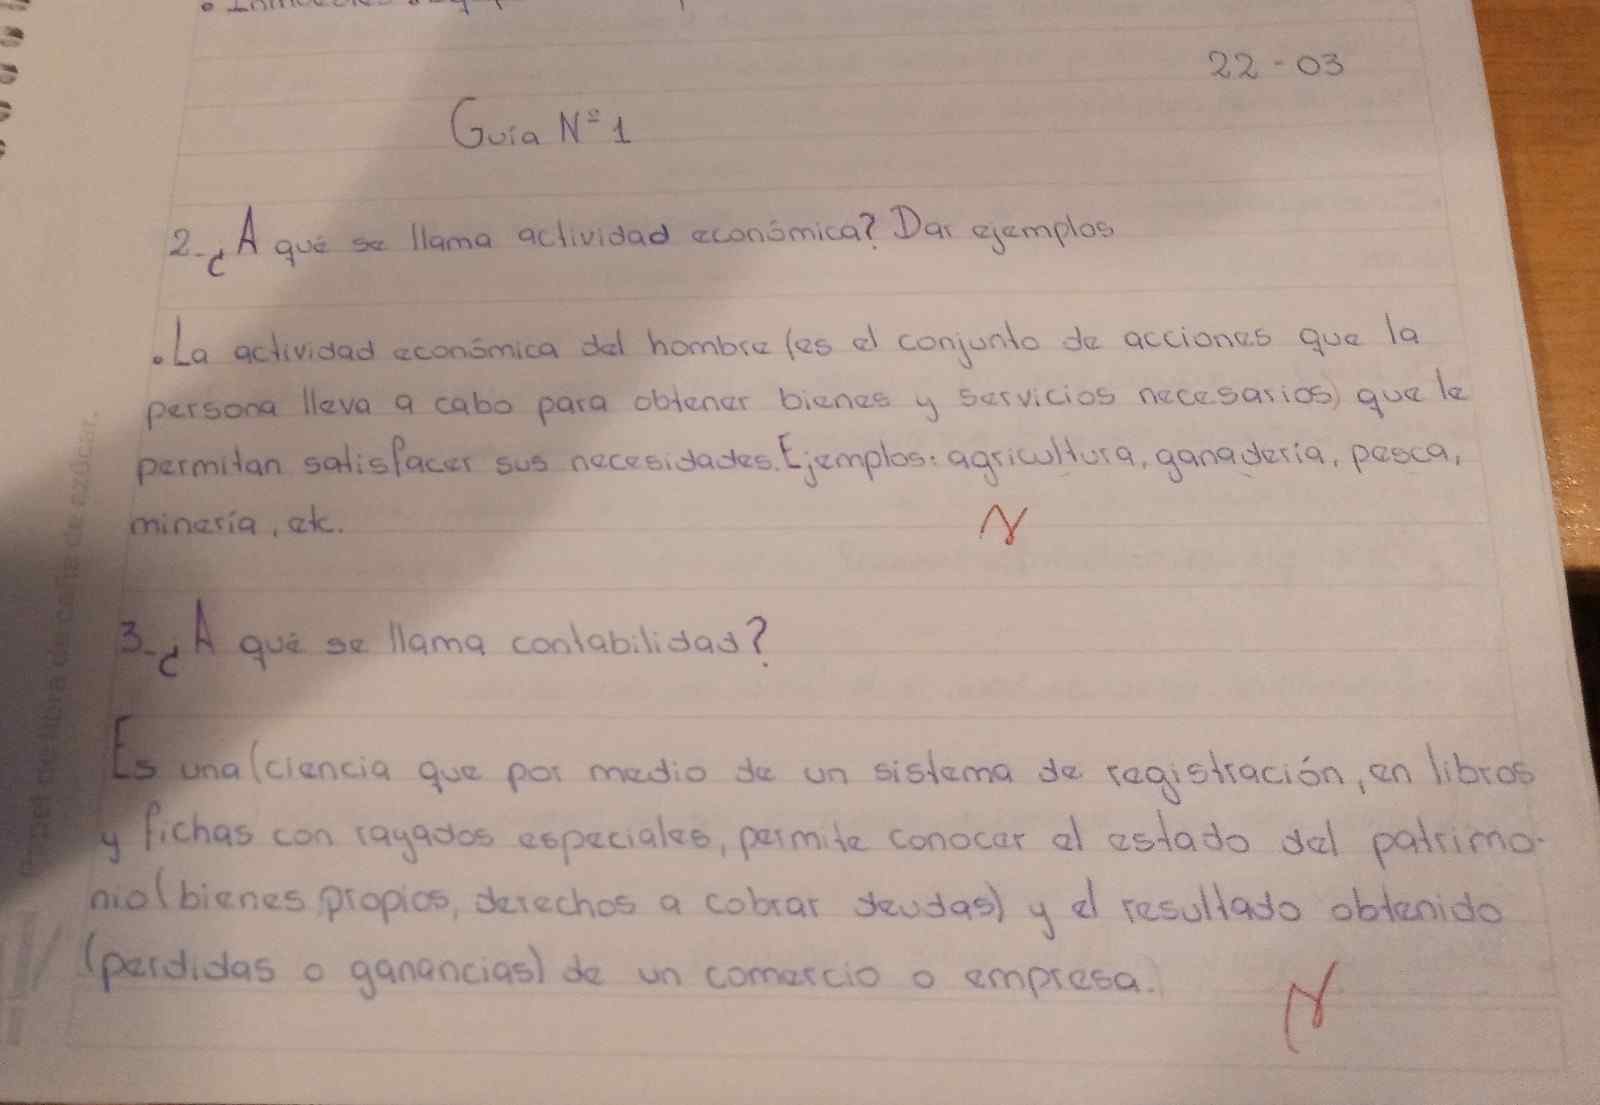 22-03
Guía Nº 1
2-¿A qué se llama actividad económica? Dar ejemplos
•La actividad económica del hombre (es el conjunto de acciones que la
persona lleva a cabo para obtener bienes y servicios necesarios) que le
permitan satisfacer sus necesidades. Ejemplos: agricultura, ganadería, pesca,
minería, etc.
3-¿A qué se llama contabilidad?
Es una (ciencia que por medio de un sistema de registración, en libros
y fichas con rayados especiales, permite conocer el estado del patrimo-
nio (bienes propios, derechos a cobrar deudas) y el resultado obtenido
(perdidas o ganancias) de un comercio o empresa.
Papel de fibra de caña de azúcar.